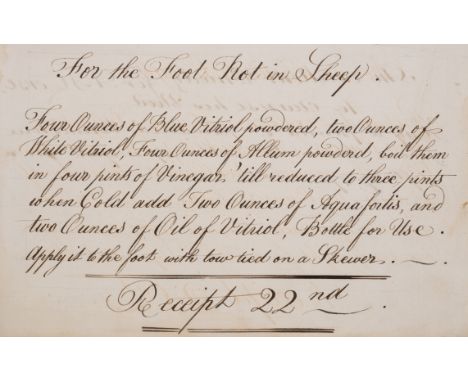 For the Foot Rot in Sheep.
Four Ounces of Blue Vitriol powdered, two Ounces of
White Vitriol, Four Ounces of Allum powdered, boil them
in four pints of Vinegar 'till reduced to three pints
when Cold add Two Ounces of Aquafortis, and
two Ounces of Oil of Vitriol, Bottle for Use.
Apply it to the foot with tow tied on a Skewer.
Receipt 22nd.